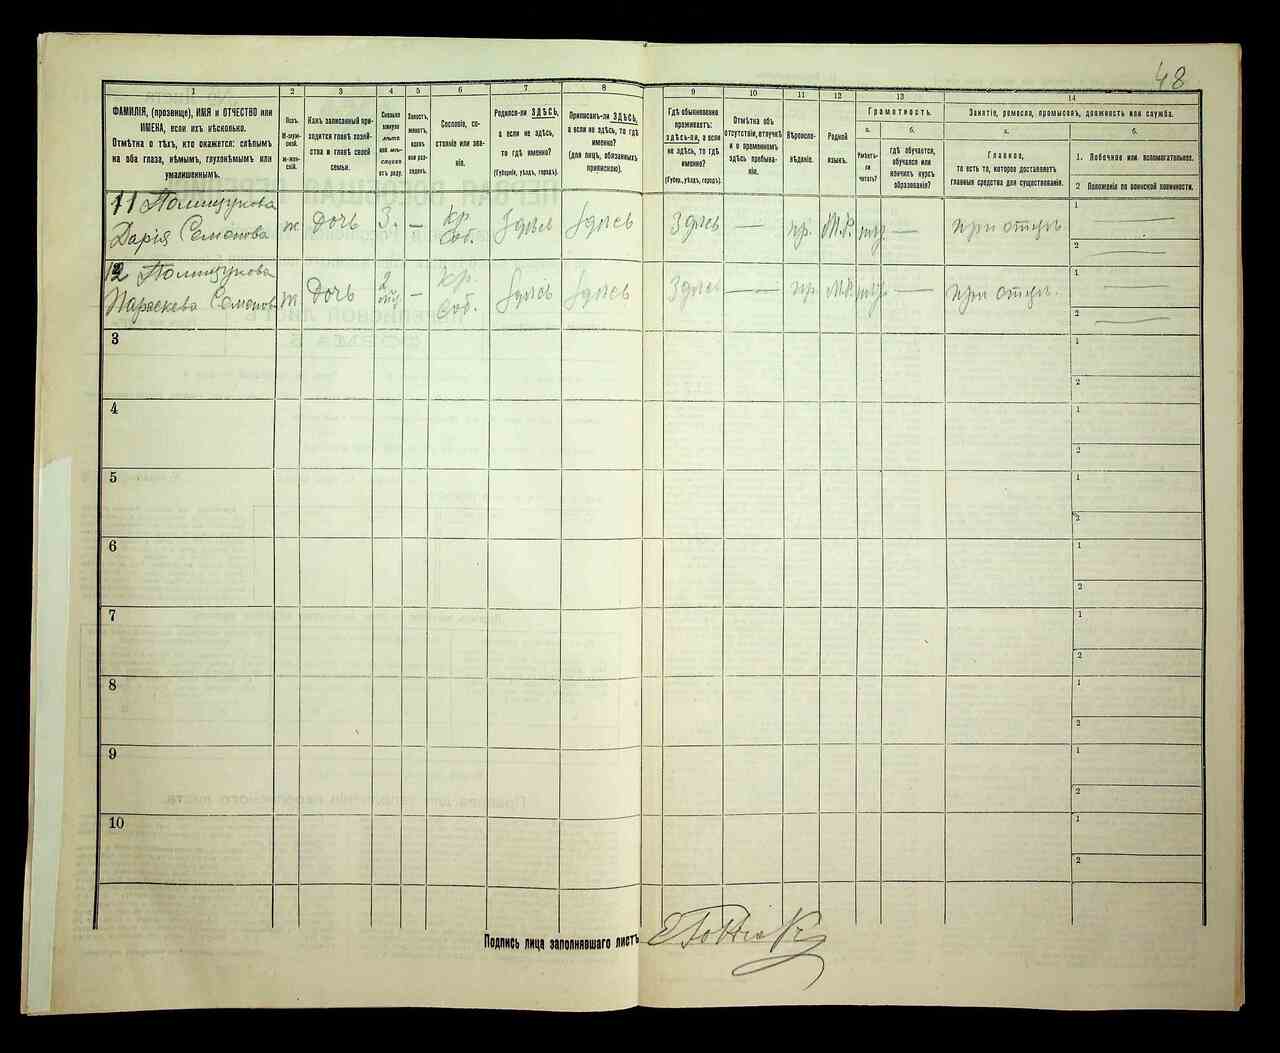 48
1 2 3 4 5 6 7 8 9 10 11 12 13 14
ФАМИЛІЯ, (прозвище), ИМЯ и ОТЧЕСТВО или
ИМЕНА, если ихъ нѣсколько.
Отмѣтка о тѣхъ, кто окажется: слѣпымъ
на оба глаза, нѣмымъ, глухонѣмымъ или
умалишеннымъ.
Полъ.
М-муж-
ской.
ж-жен-
скій.
Какъ записанный при-
ходится главѣ хозяй-
ства и главѣ своей
семьи.
Сколько
минуло
лѣтъ
или мѣ-
сяцевъ
отъ роду.
Холостъ,
женатъ,
вдовъ
или раз-
веденъ.
Сословіе, со-
стояніе или зва-
ніе.
Родился-ли ЗДѢСЬ,
а если не здѣсь,
то гдѣ именно?
(Губернія, уѣздъ, городъ).
Приписанъ-ли ЗДѢСЬ,
а если не здѣсь, то гдѣ
именно?
(для лицъ, обязанныхъ
припискою).
Гдѣ обыкновенно
проживаетъ:
здѣсь-ли, а если
не здѣсь, то гдѣ
именно?
(Губер., уѣздъ, городъ).
Отмѣтка объ
отсутствіи, отлучкѣ
и о временномъ
здѣсь пребыва-
ніи.
Вѣроиспо-
вѣданіе.
Родной
языкъ.
Грамотность.
а.
Умѣетъ-
ли
читать?
б.
гдѣ обучается,
обучался или
кончилъ курсъ
образованія?
Занятіе, ремесло, промыселъ, должность или служба.
а.
Главное,
то есть то, которое доставляетъ
главныя средства для существованія.
б.
1. Побочное или вспомогательное.
2 Положеніе по воинской повинности.
11 Полищукова
Дарія Семенова ж Дочь 3. — кр. соб. Здѣсь Здѣсь Здѣсь — пр. М.Р. — при отцѣ
1 —
2 —
12 Полищукова
Параскева Семенов ж Дочь 2 — кр. соб. Здѣсь Здѣсь Здѣсь — пр. М.Р. — при отцѣ.
1 —
2 —
3
1
2
4
1
2
5
1
2
6
1
2
7
1
2
8
1
2
9
1
2
10
1
2
Подпись лица заполнявшаго листъ